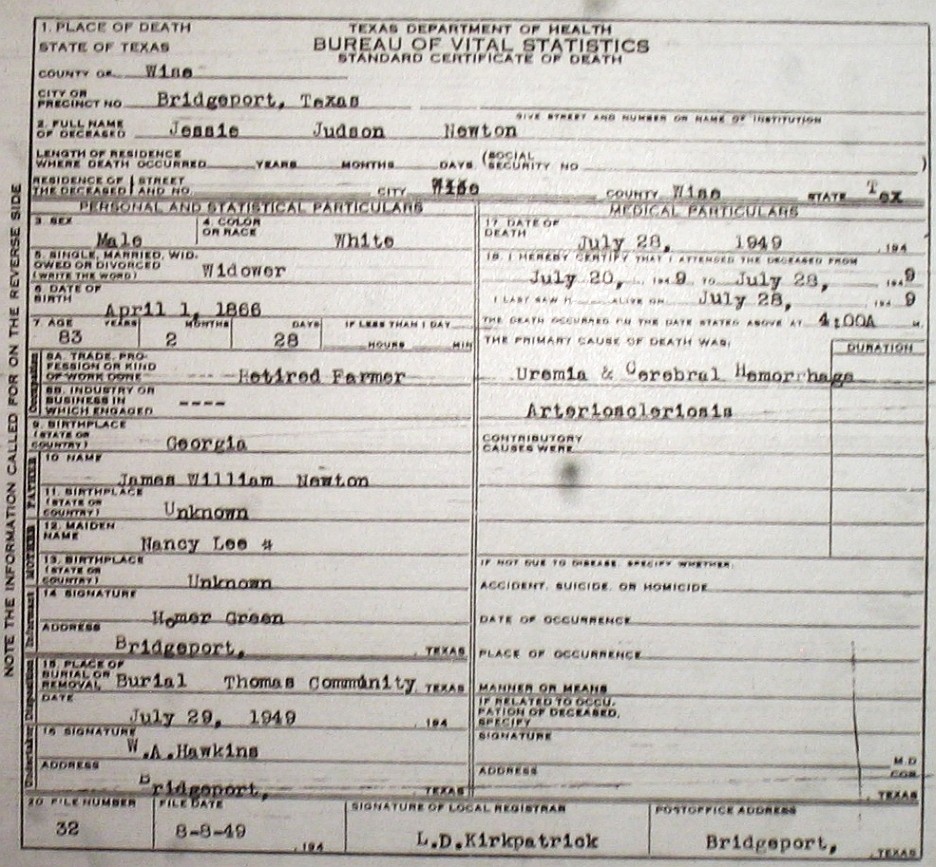 1. PLACE OF DEATH
STATE OF TEXAS
TEXAS DEPARTMENT OF HEALTH
BUREAU OF VITAL STATISTICS
STANDARD CERTIFICATE OF DEATH
COUNTY OF Wise
CITY OR
PRECINCT NO. Bridgeport, Texas
GIVE STREET AND NUMBER OR NAME OF INSTITUTION
2. FULL NAME
OF DECEASED Jessie Judson Newton
LENGTH OF RESIDENCE
WHERE DEATH OCCURRED YEARS MONTHS DAYS (SOCIAL
SECURITY NO. )
RESIDENCE OF STREET
THE DECEASED AND NO. CITY COUNTY Wise STATE Tex
PERSONAL AND STATISTICAL PARTICULARS
3. SEX
Male
4. COLOR
OR RACE
White
5. SINGLE, MARRIED, WID-
OWED OR DIVORCED
(WRITE THE WORD) Widower
6. DATE OF
BIRTH
April 1, 1866
7. AGE YEARS MONTHS DAYS IF LESS THAN 1 DAY
83 2 28 HOURS MIN
Occupation
8A. TRADE, PRO-
FESSION OR KIND
OF WORK DONE Retired Farmer
8B. INDUSTRY OR
BUSINESS IN
WHICH ENGAGED ----
9. BIRTHPLACE
(STATE OR
COUNTRY) Georgia
FATHER
10 NAME
James William Newton
11. BIRTHPLACE
(STATE OR
COUNTRY) Unknown
MOTHER
12. MAIDEN
NAME
Nancy Lee #
13. BIRTHPLACE
(STATE OR
COUNTRY) Unknown
Informant
14 SIGNATURE
Homer Green
ADDRESS
Bridgeport, TEXAS
Disposition
15. PLACE OF
BURIAL OR
REMOVAL Burial Thomas Comminity TEXAS
DATE
July 29, 1949 , 194
Undertaker
16 SIGNATURE
W.A.Hawkins
ADDRESS
Bridgeport, TEXAS
MEDICAL PARTICULARS
17. DATE OF
DEATH
July 28, 1949 , 194
18. I HEREBY CERTIFY THAT I ATTENDED THE DECEASED FROM
July 20, 194 9 TO July 28, 194 9
I LAST SAW H ALIVE ON July 28, 194 9
THE DEATH OCCURRED ON THE DATE STATED ABOVE AT 4:00A M.
THE PRIMARY CAUSE OF DEATH WAS: DURATION
Uremia & Cerebral Hemorrhage
Arterioscleriosis
CONTRIBUTORY
CAUSES WERE
IF NOT DUE TO DISEASE, SPECIFY WHETHER:
ACCIDENT, SUICIDE, OR HOMICIDE
DATE OF OCCURRENCE
PLACE OF OCCURRENCE
MANNER OR MEANS
IF RELATED TO OCCU-
PATION OF DECEASED,
SPECIFY
SIGNATURE
M.D.
ADDRESS
COR.
, TEXAS
20 FILE NUMBER
32
FILE DATE
8-8-49
, 194
SIGNATURE OF LOCAL REGISTRAR
L.D.Kirkpatrick
POSTOFFICE ADDRESS
Bridgeport, , TEXAS
NOTE THE INFORMATION CALLED FOR ON THE REVERSE SIDE